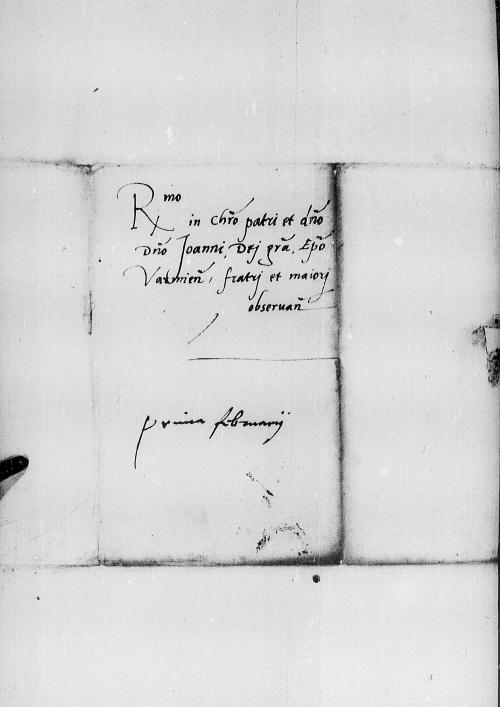 Rmo in Chro patri et dno
Dno Joanni, Dei gra, Epo
Varmien, fratri et maiori
observan
prima februarij